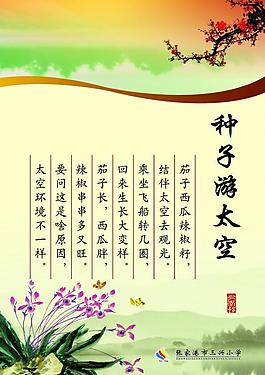 种子游太空
茄子西瓜辣椒籽，
结伴太空去观光。
乘坐飞船转几圈，
回来生长大变样。
茄子长，西瓜胖，
辣椒串串多又旺。
要问这是啥原因，
太空环境不一样。
张家港市三兴小学